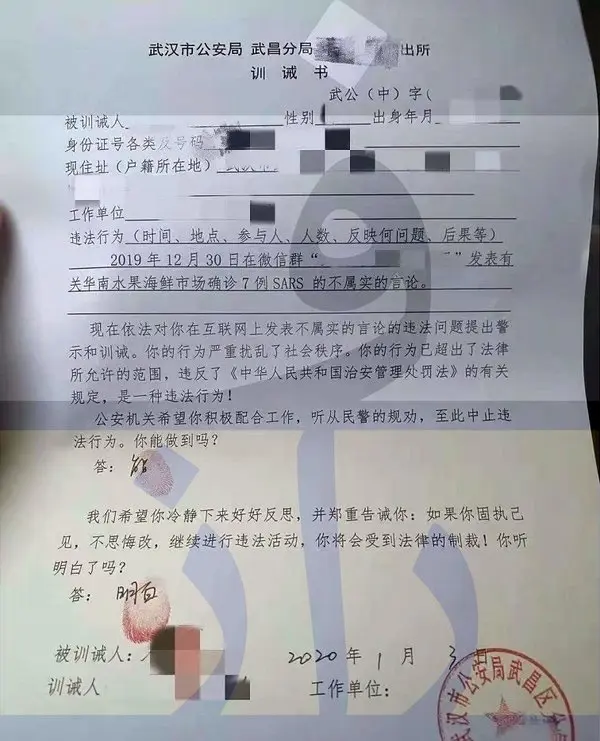 武汉市公安局 武昌分局 出所
训 诫 书
武公（中）字（
被训诫人 性别 出身年月
身份证号各类及号码
现住址（户籍所在地）武汉市
工作单位
违法行为（时间、地点、参与人、人数、反映何问题、后果等）
2019年12月30日在微信群“ ”发表有
关华南水果海鲜市场确诊7例SARS的不属实的言论。
现在依法对你在互联网上发表不属实的言论的违法问题提出警
示和训诫。你的行为严重扰乱了社会秩序。你的行为已超出了法律
所允许的范围，违反了《中华人民共和国治安管理处罚法》的有关
规定，是一种违法行为！
公安机关希望你积极配合工作，听从民警的规劝，至此中止违
法行为。你能做到吗？
答：能
我们希望你冷静下来好好反思，并郑重告诫你：如果你固执己
见，不思悔改，继续进行违法活动，你将会受到法律的制裁！你听
明白了吗？
答：明白
被训诫人： 2020年1月3日
训诫人 工作单位：
武汉市公安局武昌区分局